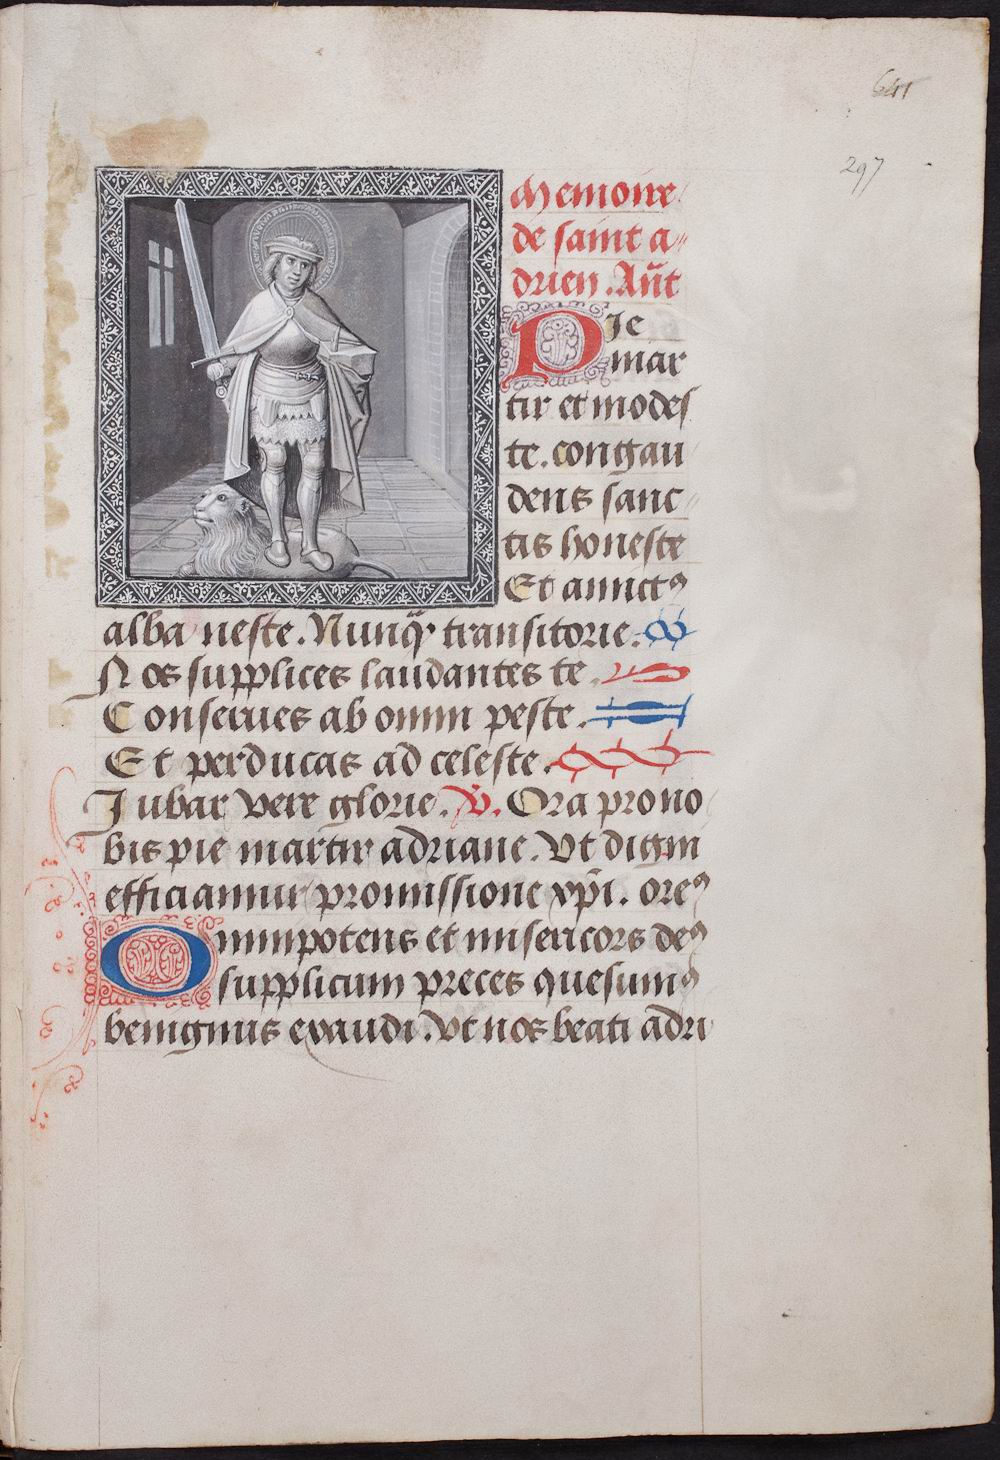 641
297
Memoire
de saint a
drien. Añt
Pie
mar
tir et modes
te. congau
dens sanc
tis honeste
Et amict⁹
alba neste. Nunq̃ transitorie.
Nos supplices laudantes te.
Conserues ab omni peste.
Et perducas ad celeste.
Jubar vere glorie. ℣. Ora pro no
bis pie martir adriane. Vt digni
efficiamur promissione xp̃i. ore⁹
Omnipotens et misericors de⁹
supplicum preces quesum⁹
benignus exaudi. Vt nos beati adri